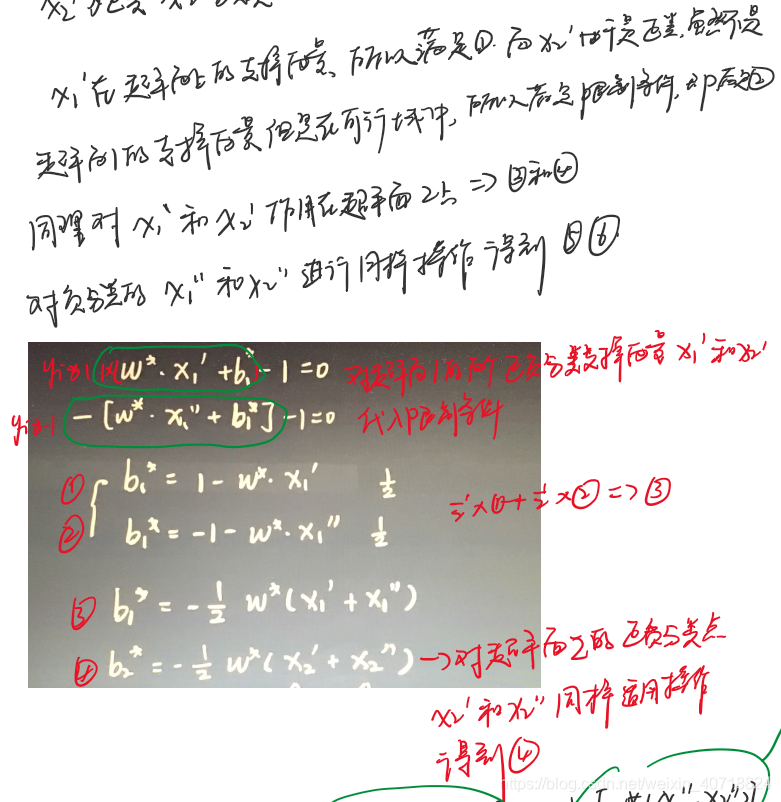 x₁'在超平面上的支撑向量、所以满足①. 而x₂'由于是正类, 虽然不是
超平面1的支撑向量但是在可行域中, 所以满足限制条件, 即启②
同理对 x₁' 和 x₂' 作用在超平面2上 => ③和④
对负分类的 x₁'' 和 x₂'' 进行同样操作得到 ⑤⑥.
yᵢ=1 1×[w*·x₁' + b₁*] - 1 = 0 对超平面1的 正负分类支撑向量 x₁' 和 x₂'
yᵢ=-1 - [w*·x₁'' + b₁*] - 1 = 0 代入限制条件
① b₁* = 1 - w*·x₁' ½
½×①+½×② => ③
② b₁* = -1 - w*·x₁'' ½
③ b₁* = -½ w*(x₁' + x₁'')
④ b₂* = -½ w*(x₂' + x₂'') → 对超平面2的正负分类点
x₂' 和 x₂'' 同样运用操作
得到④
https://blog.csdn.net/weixin_40718824